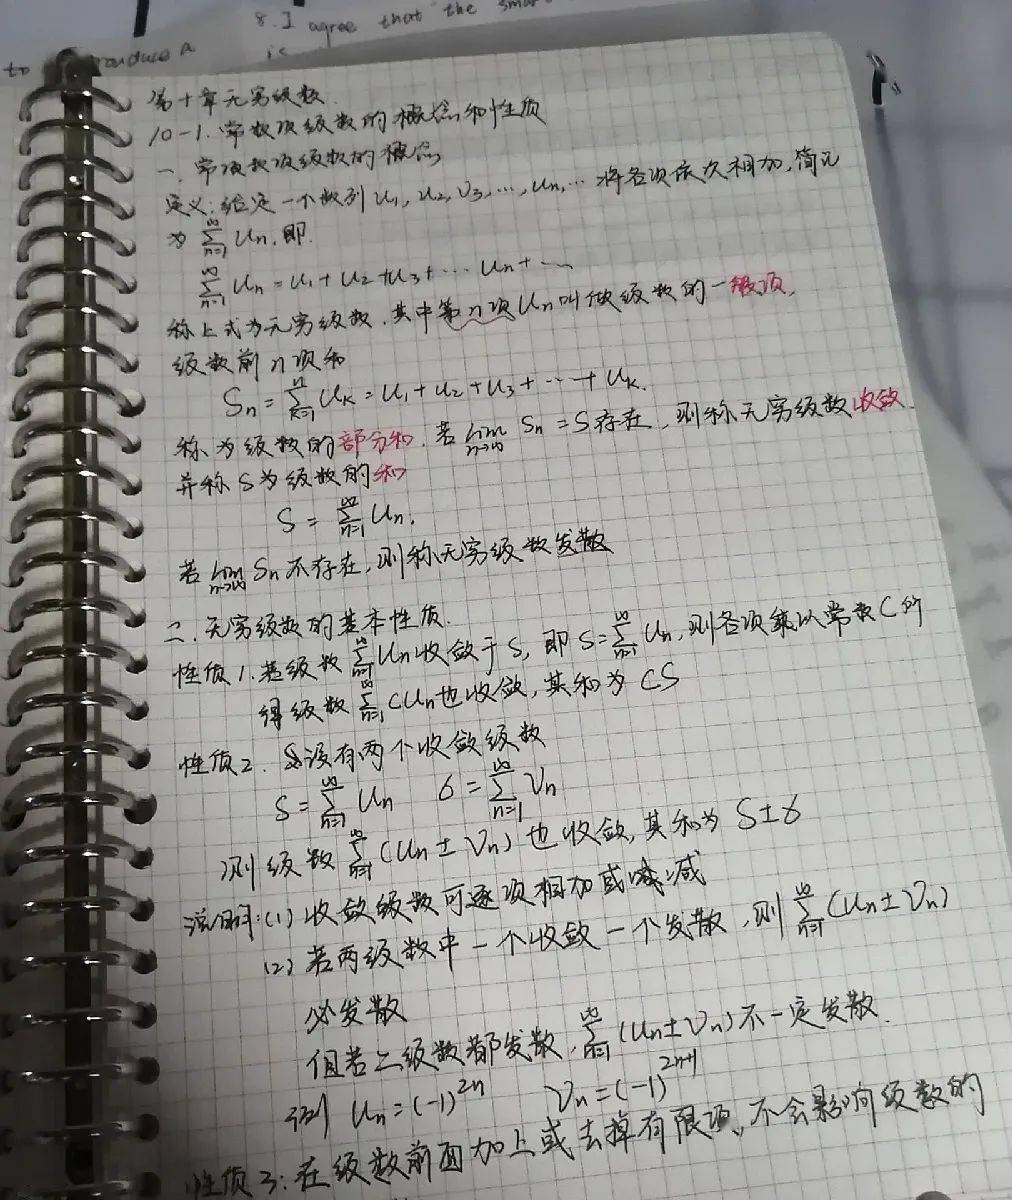 8. I agree that the smar
to produce a
is
第十章无穷级数.
10-1.常数项级数的概念和性质
一.常项数项级数的概念
定义:给定一个数列 u₁, u₂, v₃, …, uₙ, … 将各项依次相加,简记
为 ∑_{n=1}^{∞} uₙ, 即.
∑_{n=1}^{∞} uₙ = u₁ + u₂ + u₃ + … uₙ + …
称上式为无穷级数.其中第n项uₙ叫做级数的一般项.
级数前n项和
Sₙ = ∑_{k=1}^{n} uₖ = u₁ + u₂ + u₃ + … + uₖ.
称为级数的部分和.若 lim_{n→∞} Sₙ = S存在,则称无穷级数收敛.
并称S为级数的和
S = ∑_{n=1}^{∞} uₙ.
若 lim_{n→∞} Sₙ不存在,则称无穷级数发散
二.无穷级数的基本性质.
性质1.若级数 ∑_{n=1}^{∞} uₙ收敛于S, 即 S=∑_{n=1}^{∞} uₙ,则各项乘以常数C所
得级数 ∑_{n=1}^{∞} Cuₙ也收敛,其和为 CS
性质2. 设有两个收敛级数
S = ∑_{n=1}^{∞} uₙ 6 = ∑_{n=1}^{∞} vₙ
则级数 ∑_{n=1}^{∞} (uₙ ± vₙ) 也收敛,其和为 S±6
说明:(1) 收敛级数可逐项相加或减
(2) 若两级数中一个收敛一个发散,则 ∑_{n=1}^{∞} (uₙ ± vₙ)
必发散
但若二级数都发散, ∑_{n=1}^{∞} (uₙ±vₙ)不一定发散.
例 uₙ = (-1)²ⁿ vₙ = (-1)²ⁿ⁺¹
性质3:在级数前面加上或去掉有限项,不会影响级数的